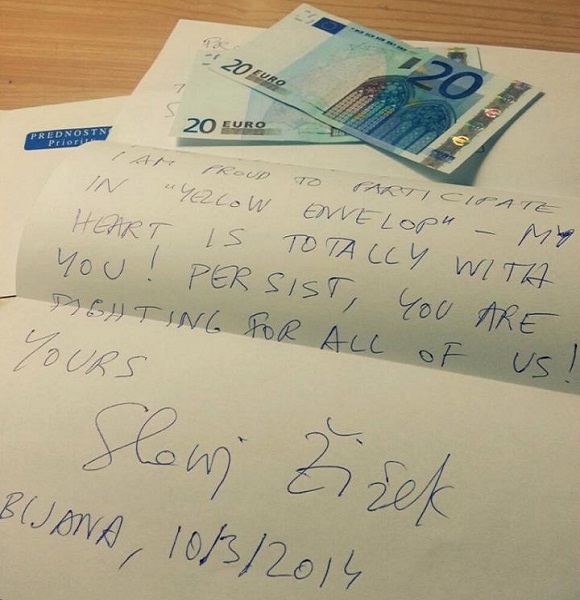 20 EURO
20
20 EURO
PREDNOSTN
Priorit
I AM PROUD TO PARTICIPATE
IN "YELLOW ENVELOP" – MY
HEART IS TOTALLY WITH
YOU! PERSIST, YOU ARE
FIGHTING FOR ALL OF US!
YOURS
Slavoj Žižek
BLJANA, 10/3/2014